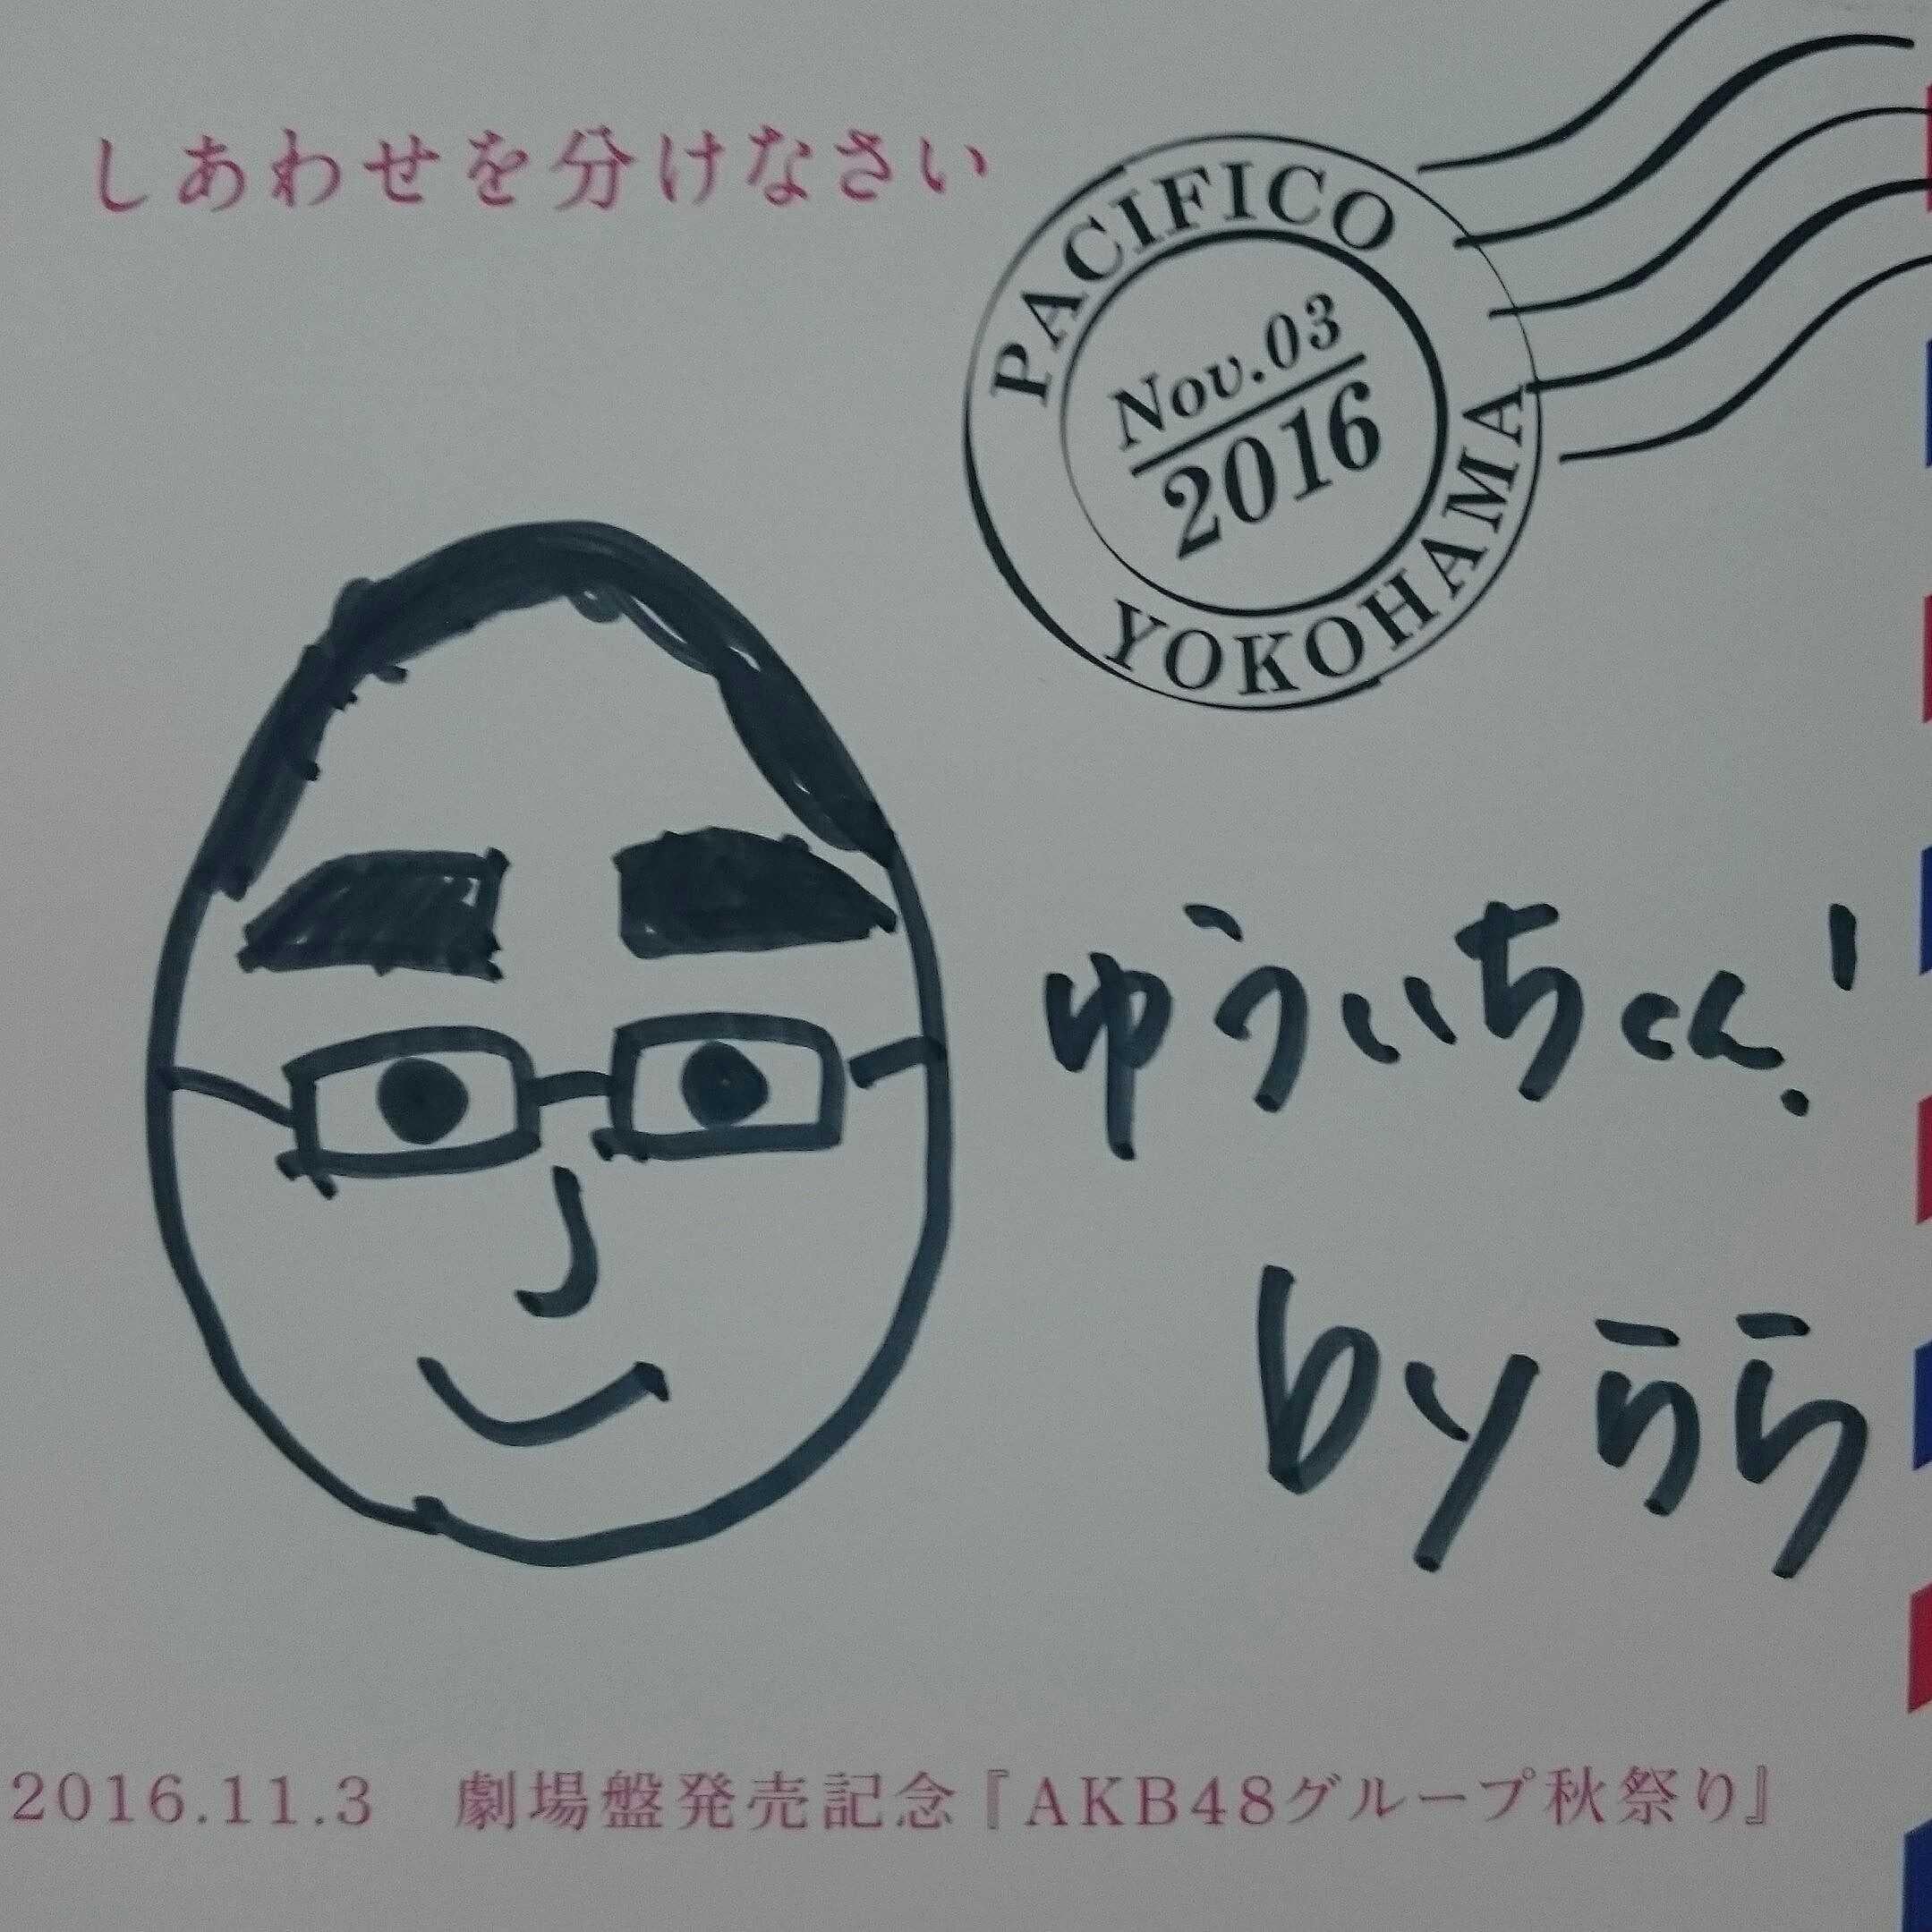 しあわせを分けなさい
PACIFICO
Nov.03
2016
YOKOHAMA
ゆういちくん!
byうらら
2016.11.3 劇場盤発売記念『AKB48グループ秋祭り』